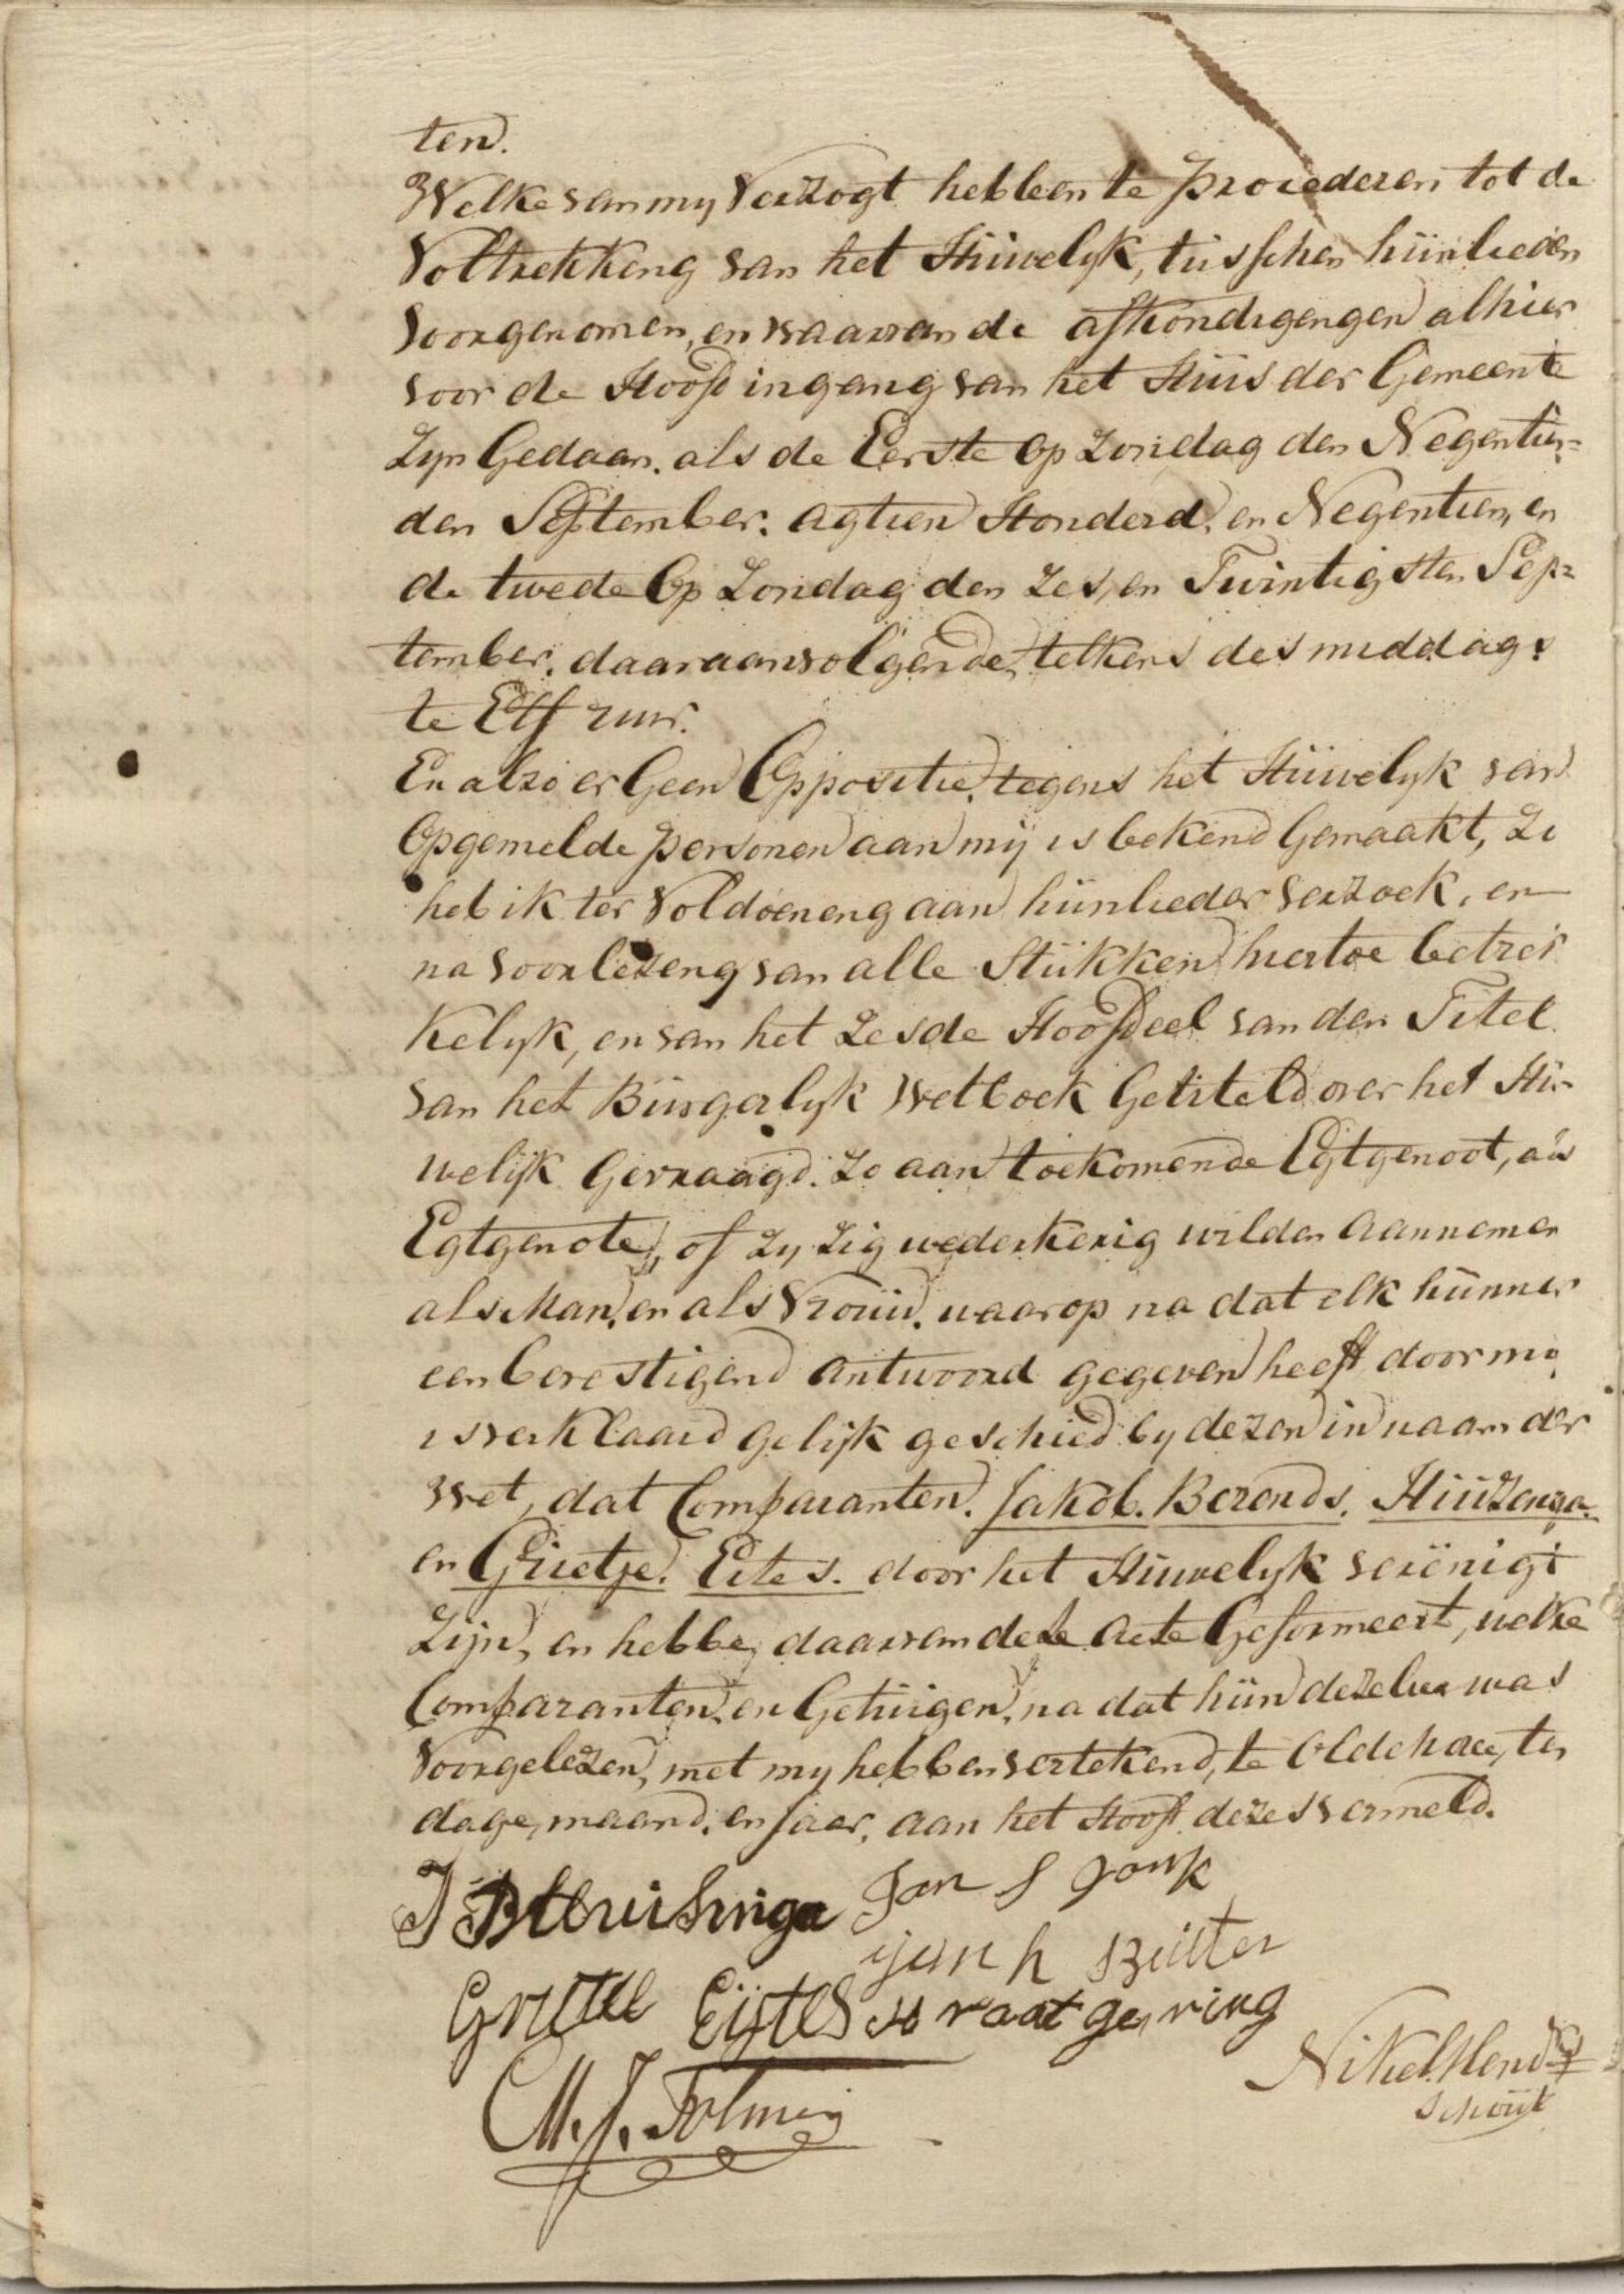 ten.
Welke van my Verzogt hebben te procederen tot de
Voltrekking van het Hüwelyk, tüsschen hünlieden
Voorgenomen, en waarvan de afkondigengen alhier
voor de Hoofd ingang van het Hüis der Gemeente
Zyn Gedaan. als de Eerste Op Zondag den Negentien=
den September. agtien Honderd. en Negentien, en
de twede Op Zondag den Zes, en Twintigsten Sep=
tember. daaraanvolgende, telkens des middags
te Elf uur.
En alzo er Geen Oppositie. tegens het Hüwelyk van
Opgemelde personen aan mij is bekend Gemaakt, Zo
heb ik ter Voldoeneng aan hünlieder verzoek, en
na voorlezeng van alle Stükken hiertoe betrek
kelyk, en van het Zesde Hoofdeel van den Titel
van het Bürgerlyk Wetboek Getiteld over het Hü-
welijk Gevraagd. Zo aan toekomende Egtgenoot, als
Egtgenote, of Zy Zig wederkerig wilden Aannemen
als Man, en als Vrouw. waarop na dat elk hünner
een bevestigend antwoord gegeven heeft, door my
is verklaard gelijk geschied by dezen in naam der
Wet, dat Comparanten. Jakob. Berends. Hüizenga.
en Grietje. Eites. door het Hüwelyk verënigt
Zijn, en hebbe, daarvan deze Acte Geformeert, welke
Comparanten, en Getüigen, na dat hün dezelve was
Voorgelezen, met my hebben vertekend, te Oldehove, ten
dage, maand. en Jaar, aan het Hooft dezes vermeld.
J B Huisinga Jan S Jonk
jan h Ritter
Grietje Eijtes H raatgering
M. J. Tolmeij
Nikel. Hendks
Schoüt